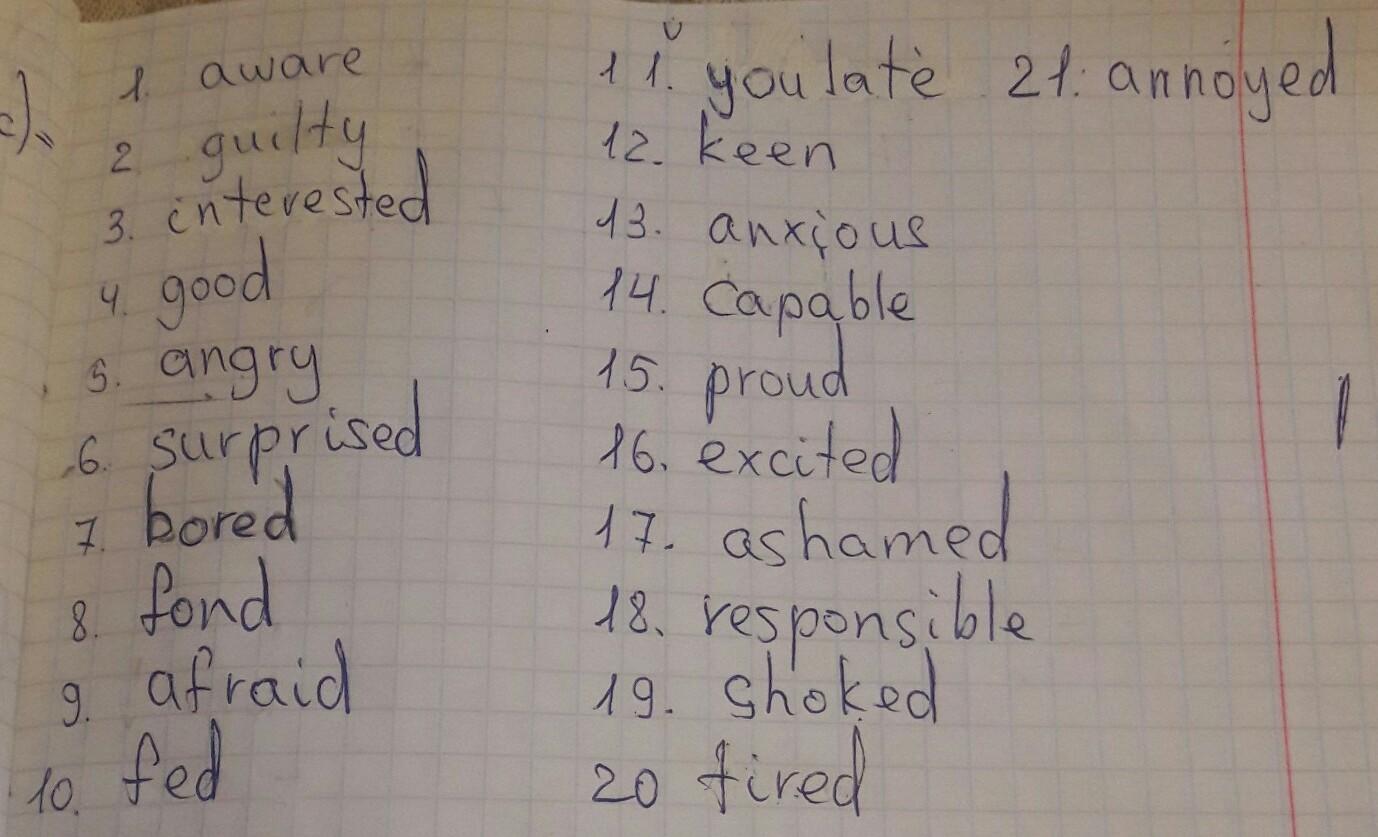 c).
1. aware
2. guilty
3. interested
4. good
5. angry
6. surprised
7. bored
8. fond
9. afraid
10. fed
11. you late
12. keen
13. anxious
14. capable
15. proud
16. excited
17. ashamed
18. responsible
19. shoked
20 tired
21. annoyed